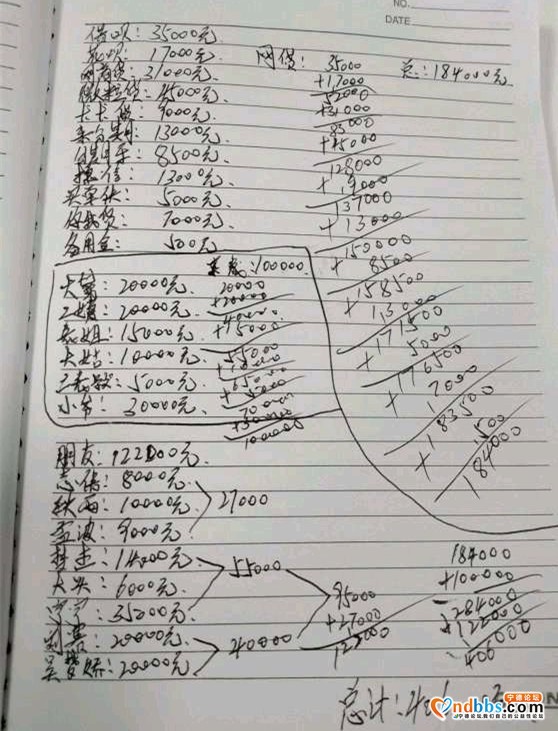 NO.
DATE
借呗：35000元、
花呗：17000元
网商贷：31000元、
微粒贷：45000元、
卡卡贷：9000元、
13000元、
8500元
13000元、
5000元、
7000元、
备用金：500元
网贷：
35000
+17000
52000
+31000
83000
+45000
128000
+9000
137000
+13000
150000
+8500
158500
+13000
171500
+5000
176500
+7000
183500
+500
184000
总：184000元
亲戚：100000
20000元、
20000元、
表姐：15000元、
大姑：10000元、
5000元、
30000元、
20000
+20000
40000
+15000
55000
+10000
65000
+5000
70000
+30000
100000
朋友：122000元、
8000元、
10000元、
9000元、
27000
14000元
大头：6000元
35000元
55000
20000元
20000元
40000
95000
+27000
122000
184000
+100000
284000
+122000
406000
总计：
宁德论坛
ndbbs.com
宁德论坛,我们自己的公益性论坛